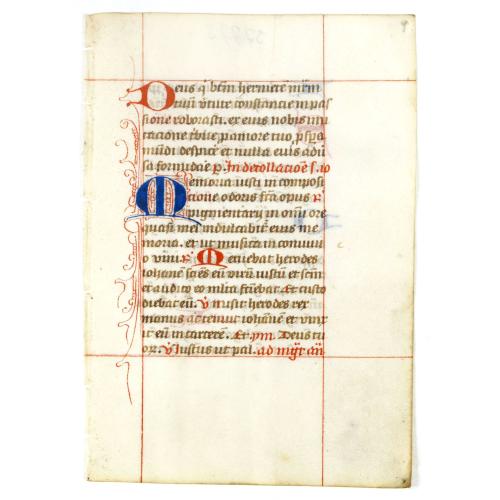 Deus q̇ btm̄ hermetē mr̄em
tuū v̄tute constancie in pas
sione roborasti. ex eius nobis imi
tacione tˀbue p amore tuo pˀspa
mūdi despicē et nulla eius adū
sa formidaē p. In decollacioē s. io
Memoria iusti in composi
cione odoris fc̄a opus
pigmentarii in omi ore
quasi mel indulcabitˀ eius me
moria. et ut musica in conuiuio
o vini. Metuebat herodes
iohanē sciēs eū virū iustū et scm̄
et audito eo mlta fāebat et custo
diebat eū. v misit herodes rex
manus ac tenuit iohanē et vinx
it eū in carcere. Deus tu
or. v Iustus ut pal. ad